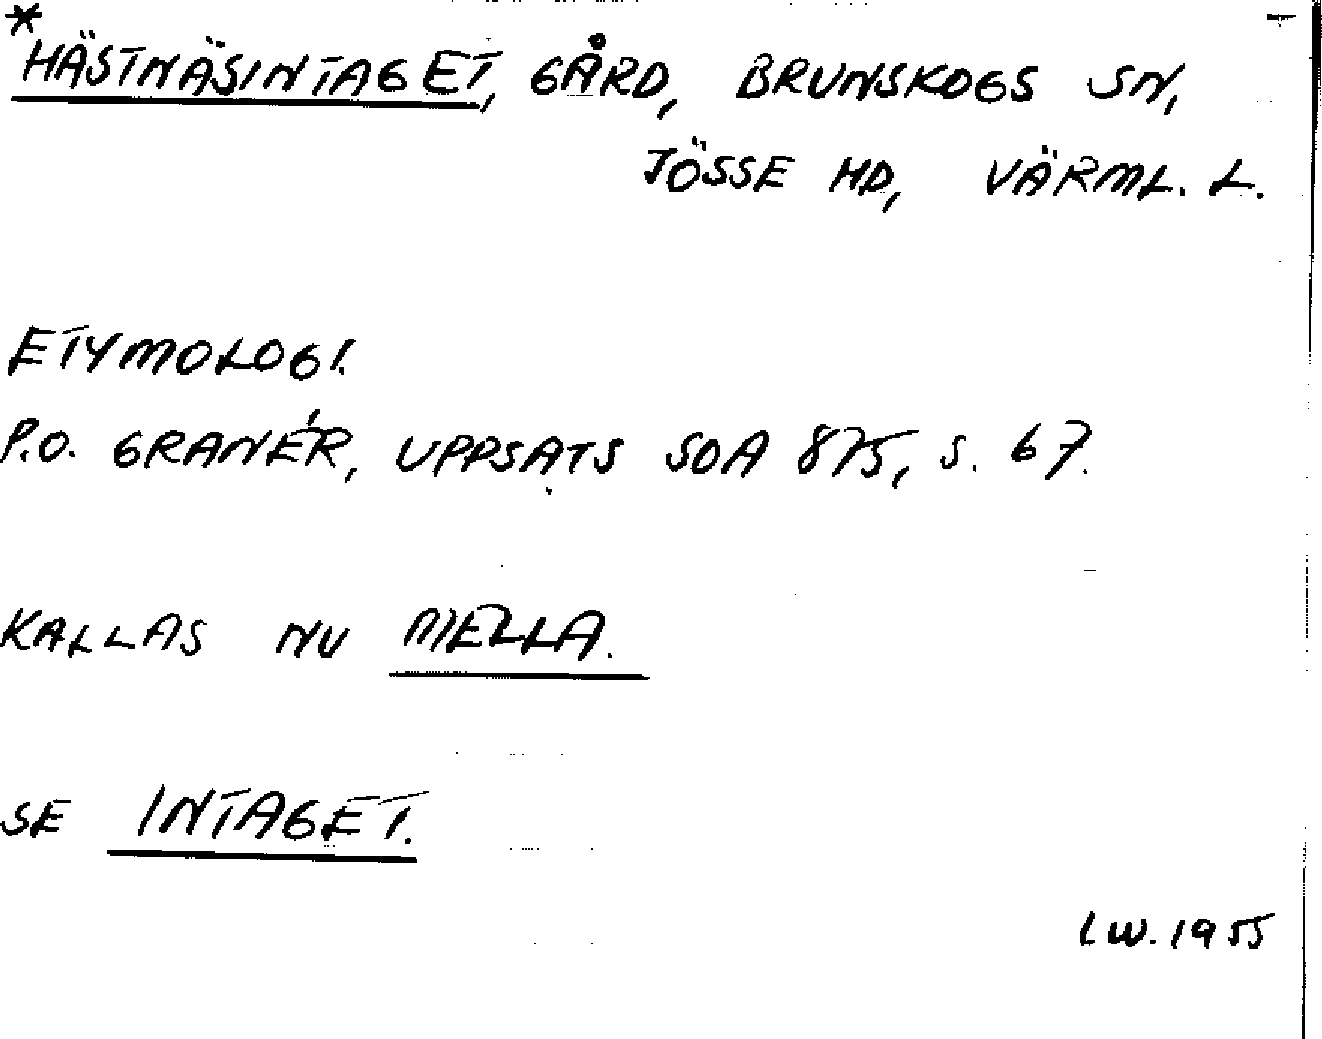 *HÄSTNÄSINTAGET, GÅRD, BRUNSKOGS SN,
JÖSSE HD, VÄRML. L.
ETYMOLOGI.
P.O. GRANÉR, UPPSATS SOA 875, S. 67.
KALLAS NU MELLA.
SE INTAGET.
LW. 1955